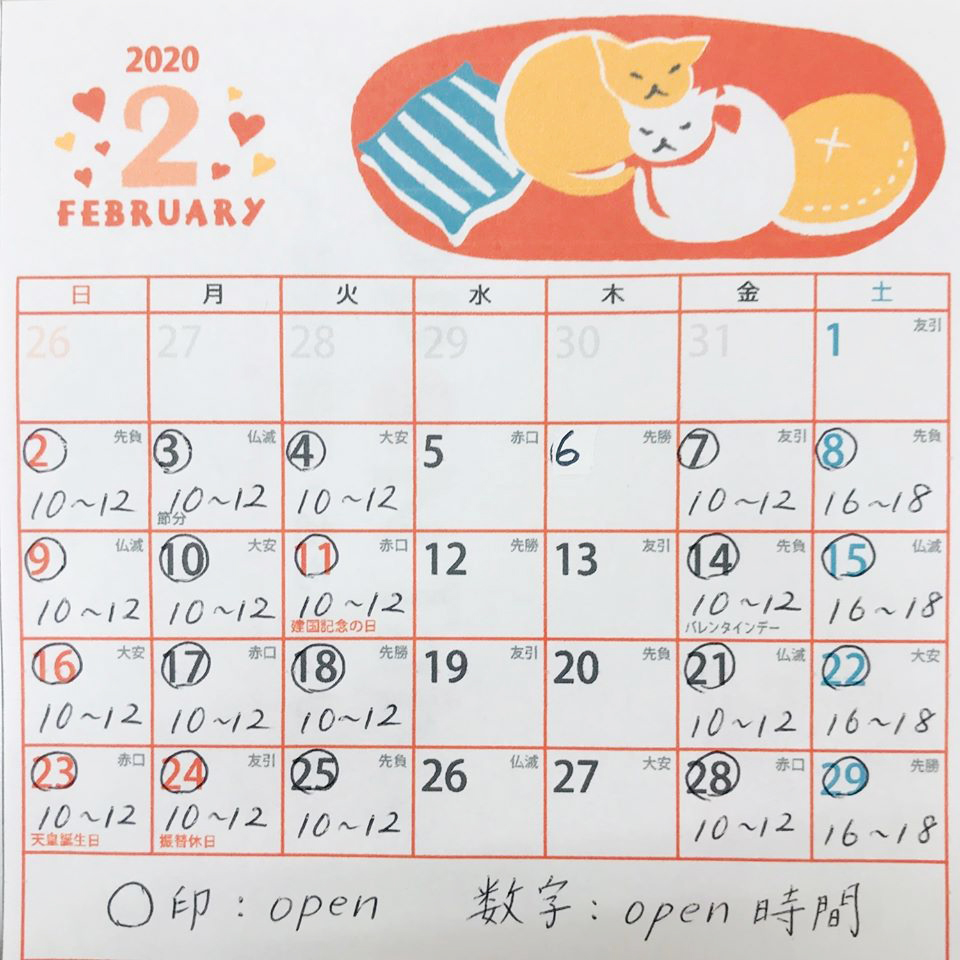 2020
2
FEBRUARY
日 月 火 水 木 金 土
26 27 28 29 30 31 1 友引
2 先負 3 仏滅 4 大安 5 赤口 6 先勝 7 友引 8 先負
10~12 10~12 10~12 10~12 16~18
節分
9 仏滅 10 大安 11 赤口 12 先勝 13 友引 14 先負 15 仏滅
10~12 10~12 10~12 10~12 16~18
建国記念の日 バレンタインデー
16 大安 17 赤口 18 先勝 19 友引 20 先負 21 仏滅 22 大安
10~12 10~12 10~12 10~12 16~18
23 赤口 24 友引 25 先負 26 仏滅 27 大安 28 赤口 29 先勝
10~12 10~12 10~12 10~12 16~18
天皇誕生日 振替休日
○印:open 数字:open時間